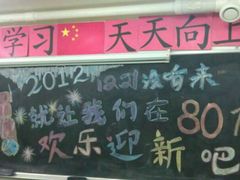 学习 天天向上
2012 12.21没有来
就让我们在80
欢乐迎新吧